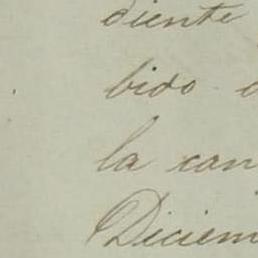 diente
bido
la can
Diciem